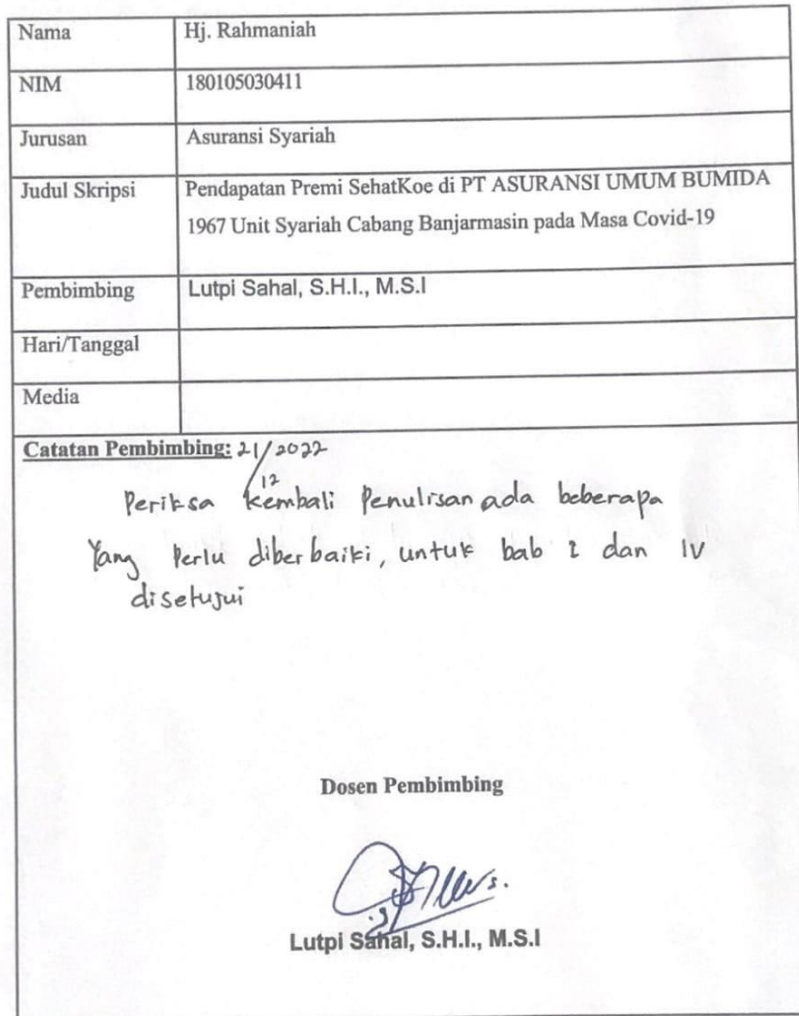 Nama Hj. Rahmaniah
NIM 180105030411
Jurusan Asuransi Syariah
Judul Skripsi Pendapatan Premi SehatKoe di PT ASURANSI UMUM BUMIDA
1967 Unit Syariah Cabang Banjarmasin pada Masa Covid-19
Pembimbing Lutpi Sahal, S.H.I., M.S.I
Hari/Tanggal
Media
Catatan Pembimbing: 21/12 2022
Periksa kembali Penulisan ada beberapa
Yang Perlu diberbaiki, untuk bab I dan IV
disetujui
Dosen Pembimbing
Lutpi Sahal, S.H.I., M.S.I